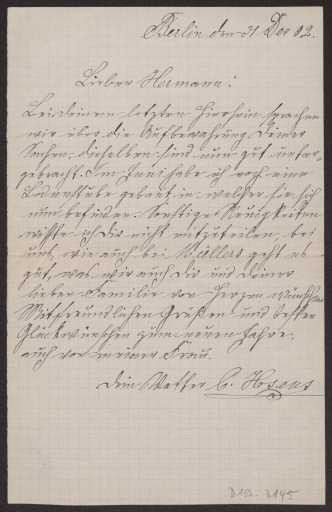 Berlin den 31 Dec 02.
Lieber Hermann!
Bei deinem letzten Hiersein sprachen
wir über die Aufbewahrung Deiner
Sachen, dieselben sind nun gut unter-
gebracht. Im habe ich noch eine
Bodenstube gebaut in welcher sie sich
nun befinden. Sonstige Neuigkeiten
wüßte ich Dir nicht mitzuteilen, bei
uns, wie auch bei Müllers geht es
gut, was wir auch Dir und deiner
lieben Familie von Herzen wünschen
Mit freundlichen Grüßen und besten
Glückwünschen zum neuen Jahre,
auch von meiner Frau.
Dein Vetter C.